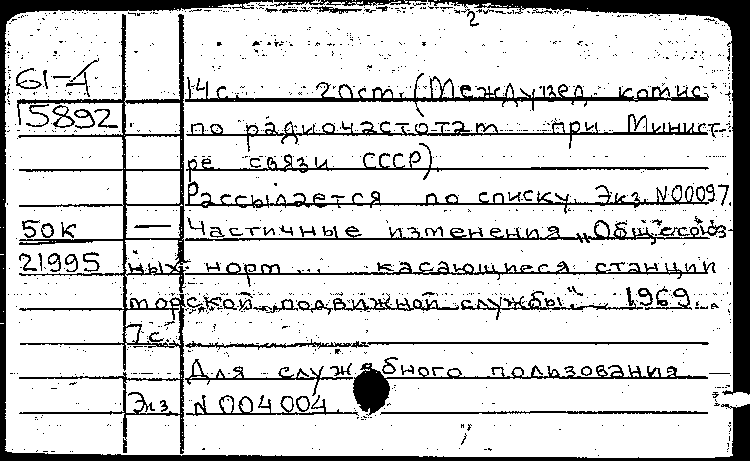 2
61-4
14с. 20см. (Междувед. комис.
15892
по радиочастотам при Минист-
ре связи СССР).
Рассылается по списку. Экз. N00097
50к — Частичные изменения „Общесоюз-
21995 ных норм ... касающиеся станции
морской подвижной службы". 1969.
7с.
Для служебного пользования
Экз. N 004004.